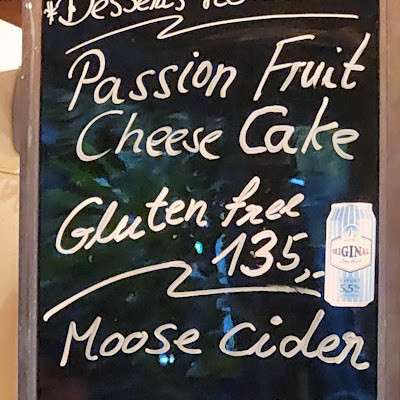 *Desserts
Passion Fruit
Cheese Cake
Gluten free
135,-
ORIGINAL
5,5%
Moose Cider